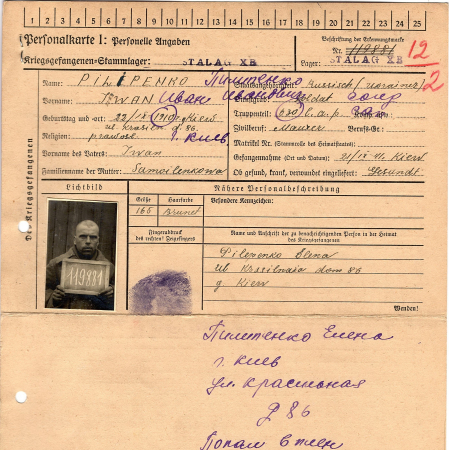 1 2 3 4 5 6 7 8 9 10 11 12 13 14 15 16 17 18 19 20 21 22 23 24 25
Personalkarte I: Personelle Angaben
Kriegsgefangenen-Stammlager: STALAG XB
Beschriftung der Erkennungsmarke
Nr. 119881
Lager: STALAG XB
12
Des Kriegsgefangenen
Name: PILIPENKO Пилипенко
Vorname: IWAN Иван Иванович
Geburtstag und -ort: 22/IX 1910 Kiew
d. 86
Religion: prawosl. г. Киев
Vorname des Vaters: Iwan
Familienname der Mutter: Samoilenkowa
Staatsangehörigkeit: Russisch
Dienstgrad: Soldat
Truppenteil: 630
Zivilberuf: Maurer Berufs-Gr.:
Matrikel Nr. (Stammrolle des Heimatstaates):
Gefangennahme (Ort und Datum): Kiew
Ob gesund, krank, verwundet eingeliefert: Gesundt
Lichtbild
119881
Nähere Personalbeschreibung
Größe Haarfarbe Besondere Kennzeichen:
166 Brunet
Fingerabdruck des rechten! Zeigefingers
Name und Anschrift der zu benachrichtigenden Person in der Heimat des Kriegsgefangenen
Pilipenko Elena
ul dom 86
g Kiew
Wenden!
Пилипенко Елена
г. Киев
ул.
Д 86
Попал в плен